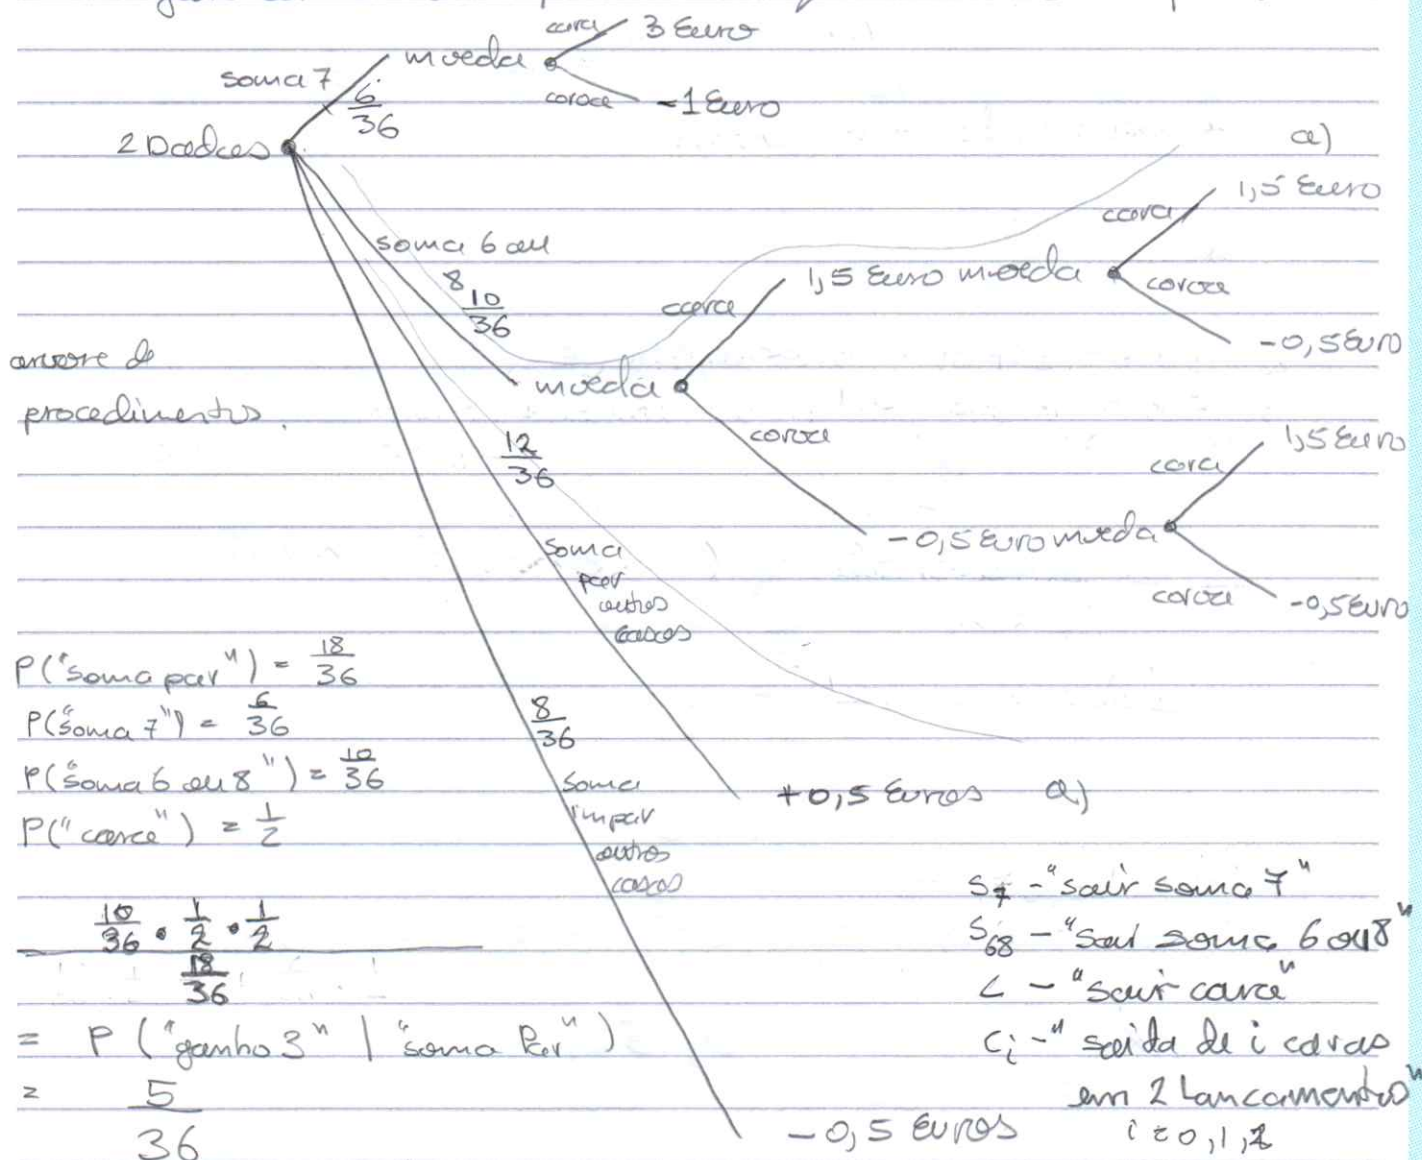 cara 3 Euro
moeda
soma 7
6/36
coroa -1 Euro
2 Dados
a)
1,5 Euro
cara
soma 6 ou
8
10/36
cara
1,5 Euro moeda
coroa
-0,5 Euro
arvore de
procedimentos.
moeda
coroa
12/36
1,5 Euro
cara
-0,5 Euro moeda
coroa
-0,5 Euro
soma
par
outros
casos
P("soma par") = 18/36
P("soma 7") = 6/36
P("soma 6 ou 8") = 10/36
P("cara") = 1/2
8/36
soma
impar
outros
casos
+0,5 Euros a)
10/36 · 1/2 · 1/2
18/36
= P("ganho 3" | "soma Par")
= 5/36
S7 - "sair soma 7"
S68 - "sai soma 6 ou 8"
C - "sair cara"
Ci - "saida de i caras
em 2 Lancamentos"
i = 0, 1, 2
-0,5 Euros